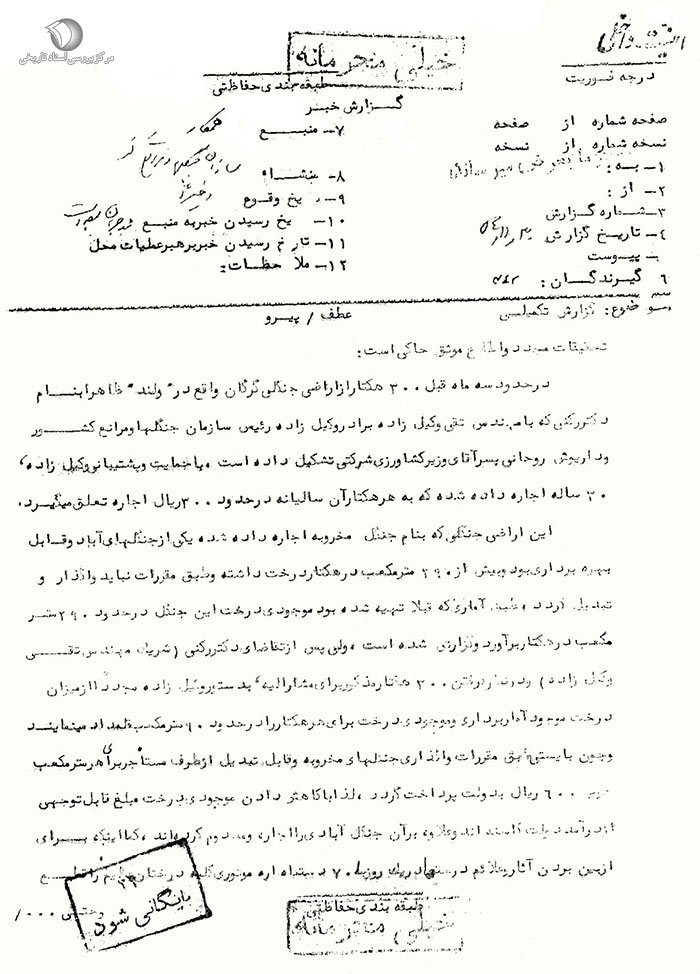 مرکز بررسی اسناد تاریخی
خیلی محرمانه
طبقه بندی حفاظتی
درجه فوریت
گزارش خبر
صفحه شماره از صفحه
نسخه شماره از نسخه
۱- به :
۲- از :
۳- شماره گزارش
۴- تاریخ گزارش
پیوست
۶ گیرندگان : ۳۴۲
۷- منبع همکار
۸- منشاء
۹- یخ وقوع
۱۰- یخ رسیدن خبر به منبع
۱۱- تاریخ رسیدن خبر برهبر عملیات محل
۱۲- ملاحظات :
موضوع : گزارش تکمیلی عطف / پیرو
تحقیقات مجدد و اطلاع موثق حاکی است :
در حدود سه ماه قبل ۳۰۰ هکتار از اراضی جنگلی گرگان واقع در " ولند " ظاهرا بنام
دکتر رکنی که با مهندس تقی وکیل زاده برادر وکیل زاده رئیس سازمان جنگلها و مراتع کشور
و داریوش روحانی پسر آقای وزیر کشاورزی شرکتی تشکیل داده است ، با حمایت و پشتیبانی وکیل زاده ،
۳۰ ساله اجاره داده شده که به هر هکتار آن سالیانه در حدود ۳۰۰ ریال اجاره تعلق میگیرد.
این اراضی جنگلی که بنام جنگل مخروبه اجاره داده شده یکی از جنگلهای آباد و قابل
بهره برداری بود و بیش از ۲۹۰ مترمکعب در هکتار درخت داشته و طبق مقررات نباید واگذار و
تبدیل گردد ، طبق آماری که قبلا تهیه شده بود موجودی درخت این جنگل در حدود ۲۹۰ متر
مکعب در هکتار برآورد و گزارش شده است ، ولی پس از تقاضای دکتر رکنی ( شریک مهندس تقی
وکیل زاده ) و در نظر گرفتن ۳۰۰ هکتار مذکور برای مشارالیه ، بدستور وکیل زاده مجددا از میزان
درخت موجود آمار برداری و موجودی درخت برای هر هکتار را در حدود ۹۰ مترمکعب قلمداد مینمایند
و چون بایستی طبق مقررات واگذاری جنگلهای مخروبه و قابل تبدیل از طرف مستأجر برای هر مترمکعب
۶۰۰ ریال بدولت پرداخت گردد ، لذا با کاهش دادن موجودی درخت مبلغ قابل توجهی
از درآمد دولت کاسته اند و علاوه بر آن جنگل آبادی را اجاره و معدوم کرده اند ، کما اینکه برای
از بین بردن آثار و علائم در یک روز با ۷۰ دستگاه اره موتوری کلیه درختان را قطع
و حتی ۰۰۰ /
بایگانی شود
طبقه بندی حفاظتی
خیلی محرمانه